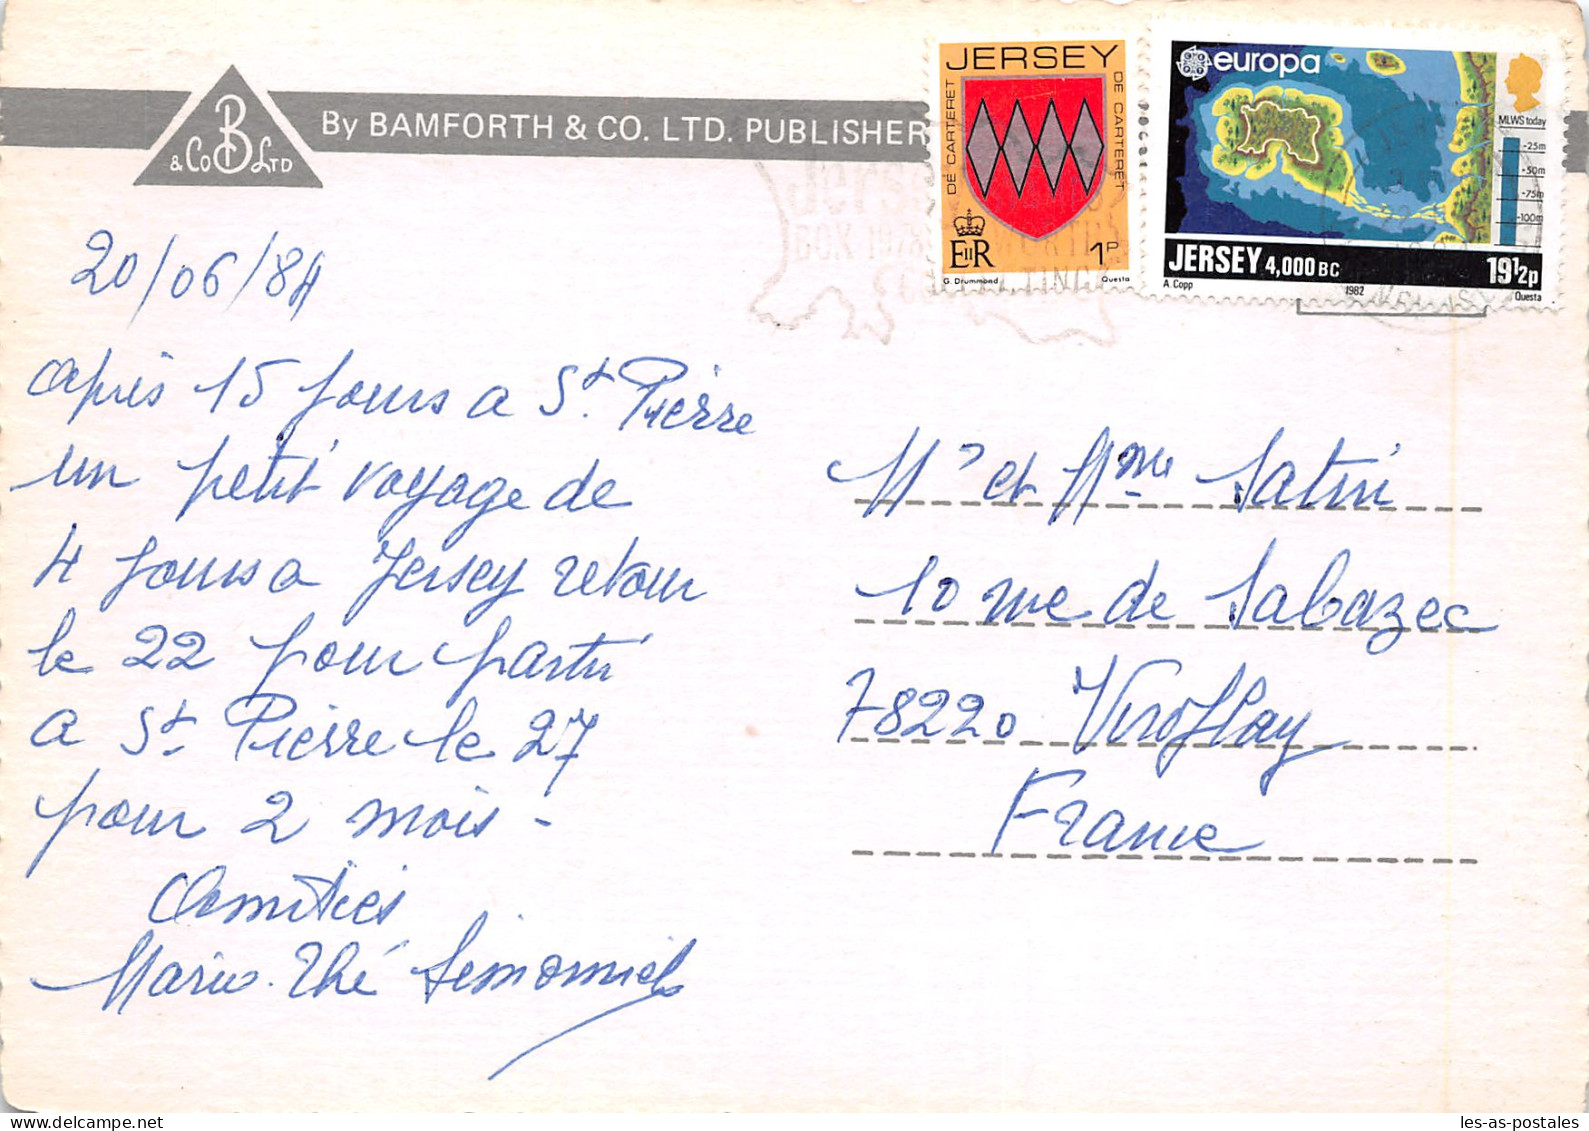 B
& Co LTD
By BAMFORTH & CO. LTD. PUBLISHER
JERSEY
DE CARTERET
DE CARTERET
EIIR
1P
G. Drummond Questa
europa
MLWS today
-25m
-50m
-75m
-100m
JERSEY 4,000 BC 19½p
A. Copp 1982 Questa
Jersey
BOX 1978
20/06/84
après 15 jours a St. Pierre
un petit voyage de
4 jours a Jersey retour
le 22 pour partir
a St Pierre le 27
pour 2 mois -
Amitiés
Marie. Thé
Mr et Mme Satin
10 rue de Sabazec
78220 Viroflay
France
les-as-postales